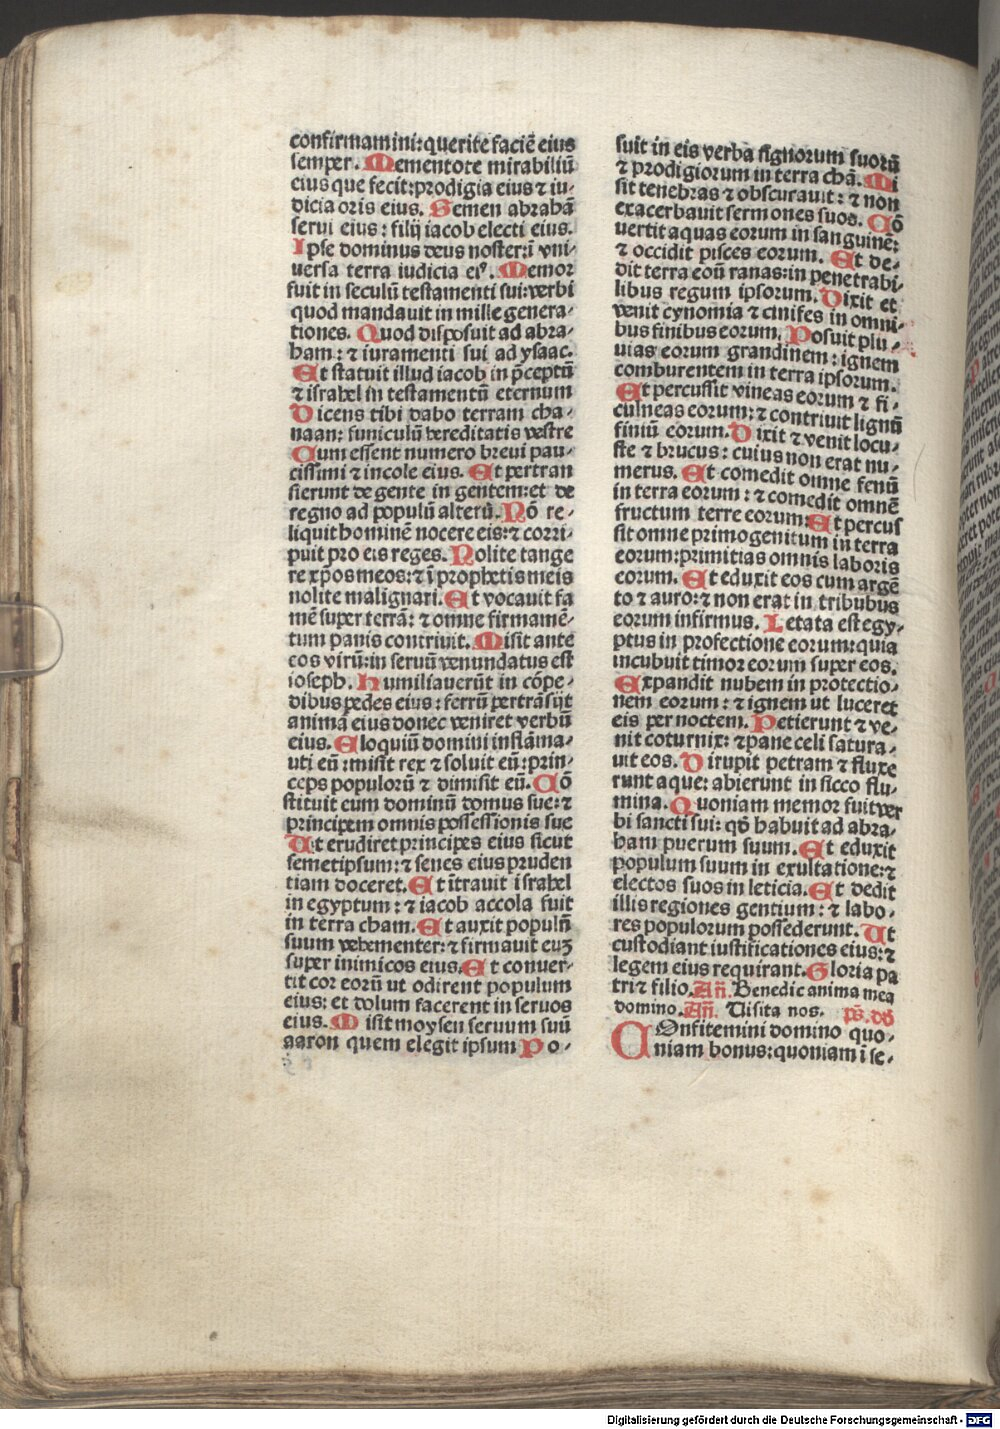 confirmamini: querite faciē eius
semper. Mementote mirabiliū
eius que fecit: prodigia eius ⁊ iu⸗
dicia oris eius. Semen abrahā
serui eius: filij iacob electi eius.
Ipse dominus deus noster: ī vni⸗
uersa terra iudicia eiꝰ. Memor
fuit in seculū testamenti sui: verbi
quod mandauit in mille genera⸗
tiones. Quod disposuit ad abra⸗
ham: ⁊ iuramenti sui ad ysaac.
Et statuit illud iacob in p̄ceptū
⁊ israhel in testamentū eternum
Dicens tibi dabo terram cha⸗
naan: funiculū hereditatis vestre
Cum essent numero breui pau⸗
cissimi ⁊ incole eius. Et pertran
sierunt de gente in gentem: et de
regno ad populū alterū. Nō re⸗
liquit hominē nocere eis: ⁊ corri⸗
puit pro eis reges. Nolite tange
re xp̄os meos: ⁊ ī prophetis meis
nolite malignari. Et vocauit fa
mē super terrā: ⁊ omne firmamē⸗
tum panis contriuit. Misit ante
eos virū: in seruū venundatus est
ioseph. Humiliauerūt in cōpe⸗
dibus pedes eius: ferrū pertrāsijt
animā eius donec veniret verbū
eius. Eloquiū domini inflāma⸗
uti eū: misit rex ⁊ soluit eū: prin⸗
ceps populorū ⁊ dimisit eū. Cō
stituit eum dominū domus sue: ⁊
principem omnis possessionis sue
Ut erudiret principes eius sicut
semetipsum: ⁊ senes eius pruden
tiam doceret. Et ītrauit israhel
in egyptum: ⁊ iacob accola fuit
in terra cham. Et auxit populū
suum vehementer: ⁊ firmauit euꝫ
super inimicos eius. Et conuer⸗
tit cor eorū ut odirent populum
eius: et dolum facerent in seruos
eius. Misit moysen seruum suū
aaron quem elegit ipsum Po⸗
suit in eis verba signorum suorū
⁊ prodigiorum in terra chā. Mi
sit tenebras ⁊ obscurauit: ⁊ non
exacerbauit sermones suos. Cō
uertit aquas eorum in sanguinē:
⁊ occidit pisces eorum. Et de⸗
dit terra eoū ranas: in penetrabi⸗
libus regum ipsorum. Dixit et
venit cynomia ⁊ cinifes in omni⸗
bus finibus eorum. Posuit plu⸗
uias eorum grandinem: ignem
comburentem in terra ipsorum.
Et percussit vineas eorum ⁊ fi⸗
culneas eorum: ⁊ contriuit lignū
finiū eorum. Dixit ⁊ venit locu⸗
ste ⁊ brucus: cuius non erat nu⸗
merus. Et comedit omne fenū
in terra eorum: ⁊ comedit omnē
fructum terre eorum: Et percus
sit omne primogenitum in terra
eorum: primitias omnis laboris
eorum. Et eduxit eos cum argē
to ⁊ auro: ⁊ non erat in tribubus
eorum infirmus. Letata est egy⸗
ptus in profectione eorum: quia
incubuit timor eorum super eos.
Expandit nubem in protectio⸗
nem eorum: ⁊ ignem ut luceret
eis per noctem. Petierunt ⁊ ve⸗
nit coturnix: ⁊ pane celi satura⸗
uit eos. Dirupit petram ⁊ fluxe
runt aque: abierunt in sicco flu⸗
mina. Quoniam memor fuit ver
bi sancti sui: qđ habuit ad abra⸗
ham puerum suum. Et eduxit
populum suum in exultatione: ⁊
electos suos in leticia. Et dedit
illis regiones gentium: ⁊ labo⸗
res populorum possederunt. Ut
custodiant iustificationes eius: ⁊
legem eius requirant. Gloria pa
tri ⁊ filio. Añ. Benedic anima mea
domino. Añ. Uisita nos. ps̄. dd̄
COnfitemini domino quo⸗
niam bonus: quoniam ī se⸗
Digitalisierung gefördert durch die Deutsche Forschungsgemeinschaft - DFG